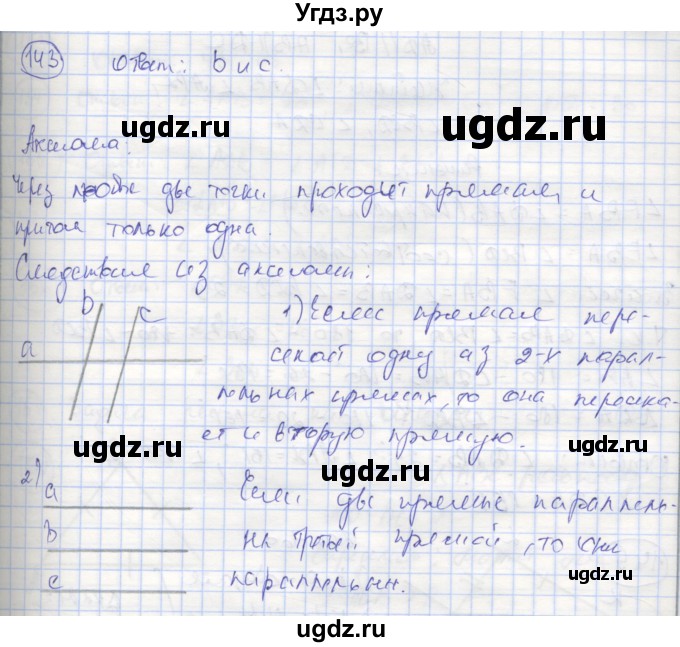 Угдз.ру
143 Ответ: b и c.
ugdz.ru ugdz.ru
Аксиома:
Через любые две точки проходит прямая, и
притом только одна.
Следствия из аксиомы:
b c 1) Если прямая пере-
a секает одну из 2-х парал-
лельных прямых, то она пересека-
ет и вторую прямую.
ugdz.ru ugdz.ru
ugdz.ru
2) a Если две прямые параллель-
b ны третьей прямой, то они
c параллельны.
ugdz.ru ugdz.ru
ugdz.ru